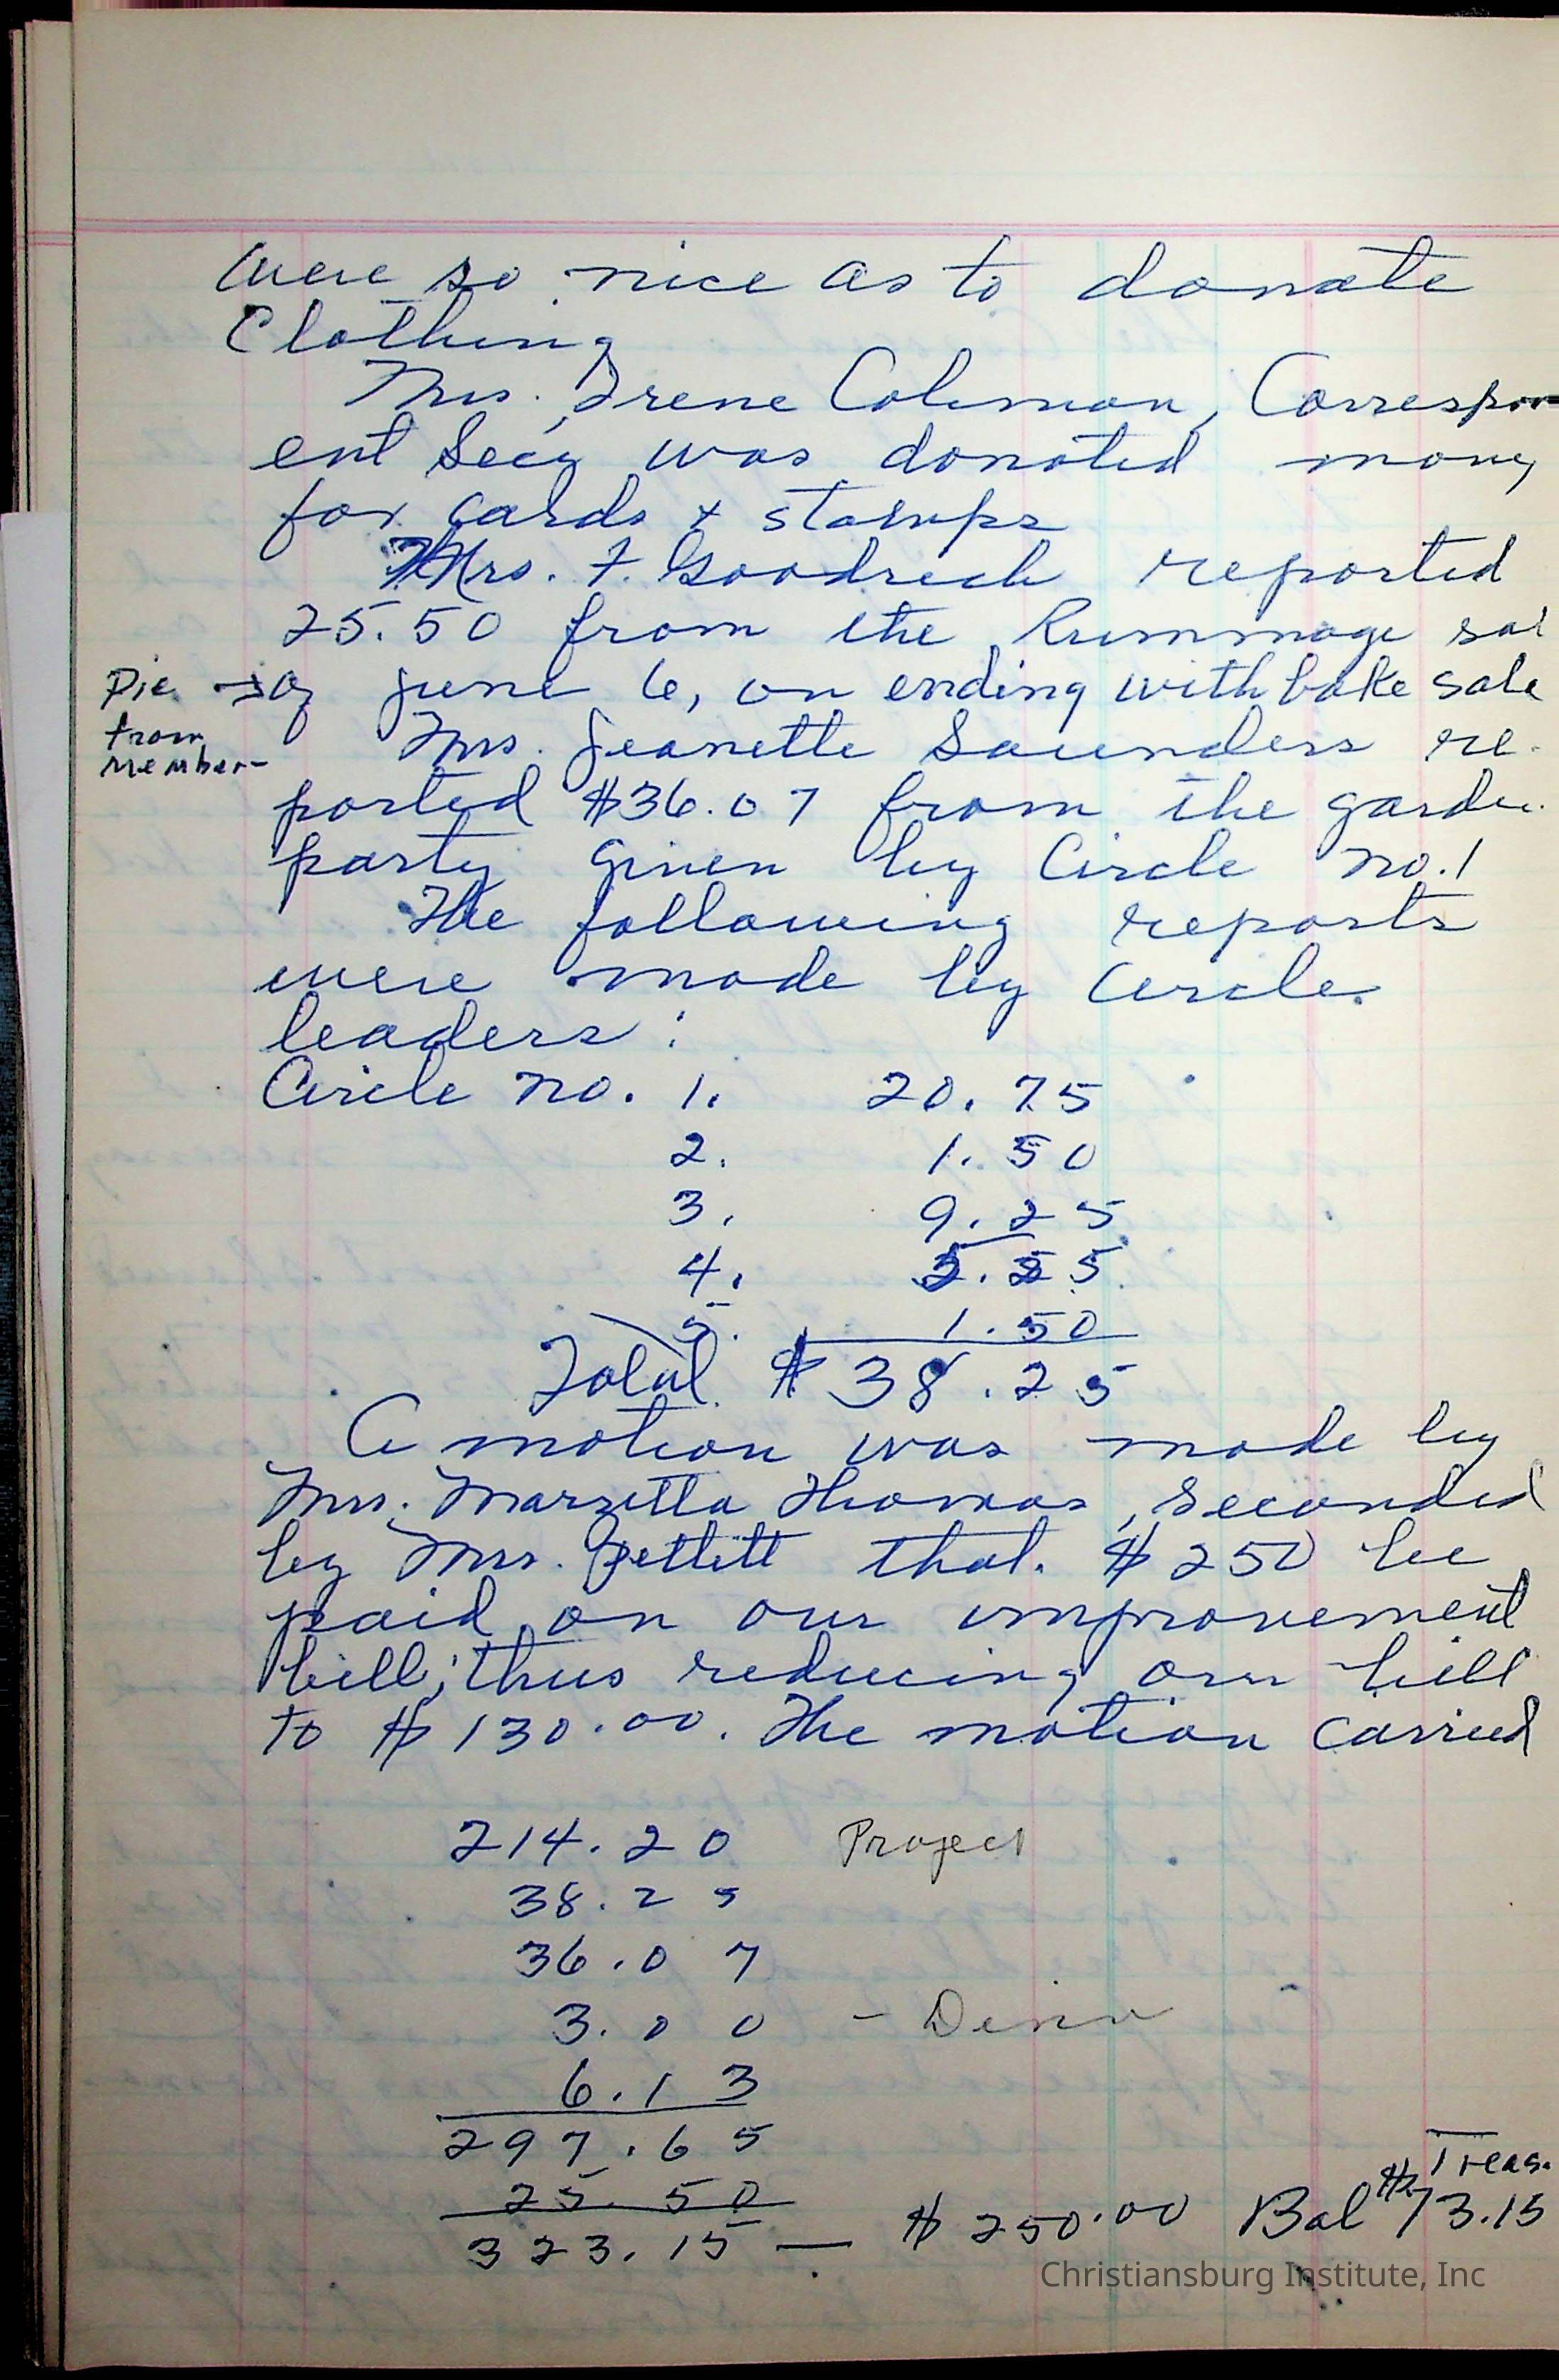 were so nice as to donate
Clothing
Mrs. Irene Coleman, Correspon
ent Secy was donated mony
for cards & stamps
Mrs. F. Goodrich reported
25.50 from the Rummage sal
Pie from member
of June 6, on ending with bake sale
Mrs. Jeanette Saunders re-
ported $36.07 from the garden
party given by Circle no. 1
The following reports
were made by Circle
leaders:
Circle no. 1. 20.75
2. 1.50
3. 9.25
4. 5.25
5. 1.50
Total $38.25
A motion was made by
Mrs. Marzetta Thomas, seconded
by Mrs. Pettitt that $250 be
paid on our improvement
bill; thus reducing our bill
to $130.00. The motion carried
214.20 Project
38.25
36.07
3.00 -
6.13
297.65
25.50
Treas.
323.15 — $250.00 Bal $73.15
Christiansburg Institute, Inc